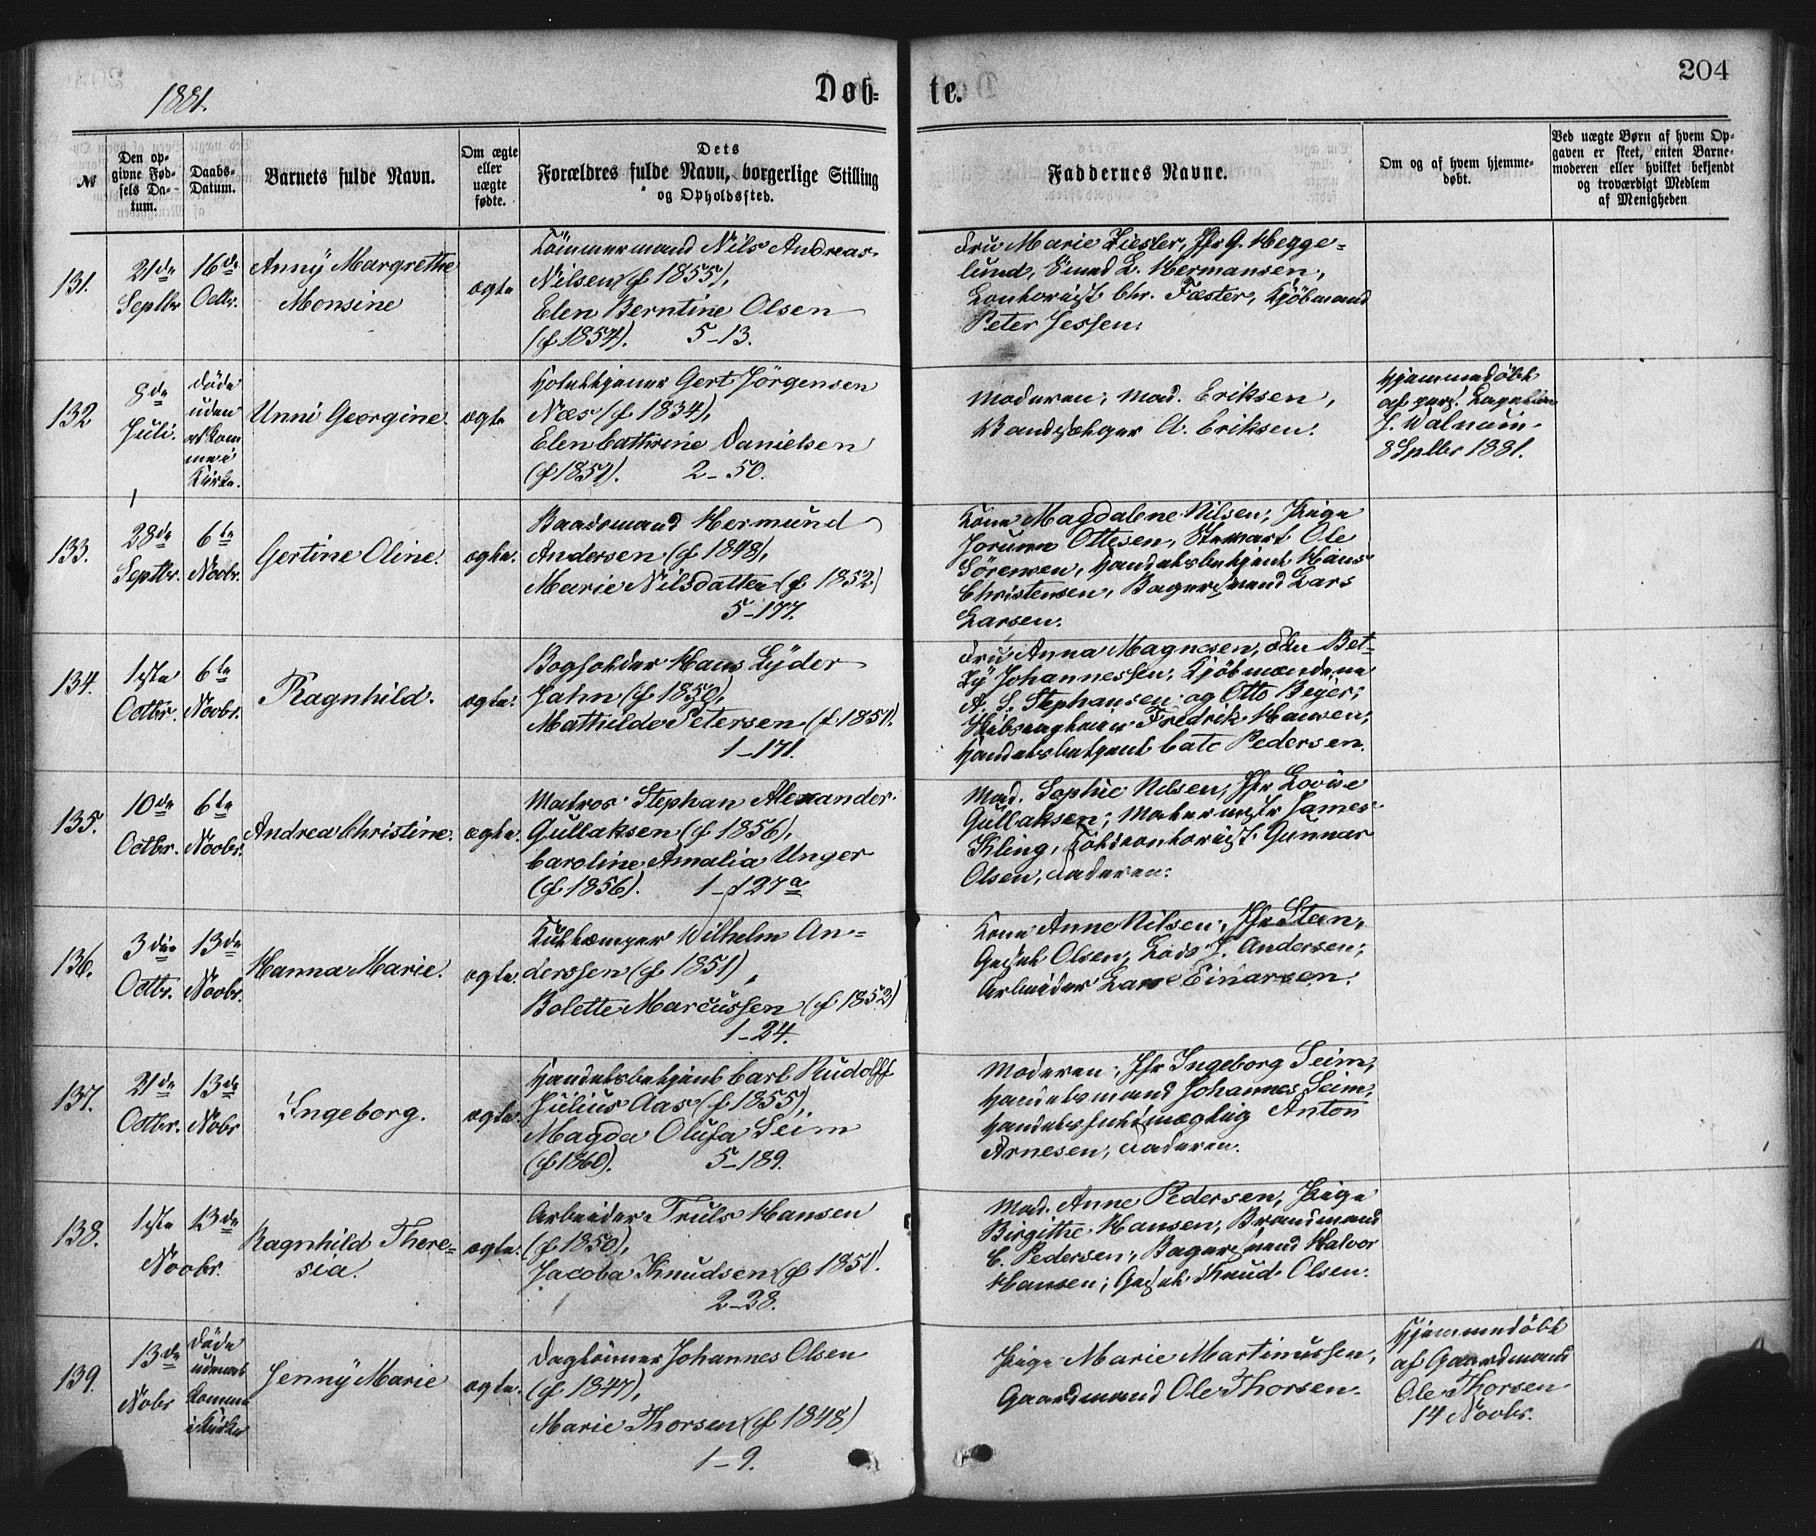 1881.
Døb-
te.
204
№
Den op-
givne Fød-
sels Da-
tum.
Daabs-
Datum.
Barnets fulde Navn.
Om ægte
eller
uægte
fødte.
Dets
Forældres fulde Navn, borgerlige Stilling
og Opholdssted.
Faddernes Navne.
Om og af hvem hjemme-
døbt.
Ved uægte Børn af hvem Op-
gaven er skeet, enten Barne-
moderen eller hvilket bekjendt
og troværdigt Medlem
af Menigheden
131.
21de
Septbr
16de
Octbr.
Anny Margrethe
Monsine
ægte
Tömmermand Nils Andreas
Nilsen (f 1855),
Elen Berntine Olsen
(f 1854). 5-13.
Fru Marie Ziesler, Jfr G. Hegge-
lund, Smed L. Hermansen,
Contorist Chr. Fæster, Kjöbmand
Peter Jessen.
132
8de
Juli.
döde
uden
at kom
me i
Kirke.
Unni Georgine.
ægte
Gert Jörgensen
Næs (f 1834),
Elen Cathrine Danielsen
(f 1851). 2-50.
Moderen, Mad. Eriksen,
A. Eriksen.
Hjemmedöbt
af pers. Capellan
J. Walnum
8 Sptbr 1881.
133.
28de
Septbr.
6te
Novbr.
Gertine Oline.
ægte.
Baadsmand Hermund
Andersen (f 1848),
Marie Nilsdatter (f 1852)
5-177.
Kone Magdalene Nilsen, Pige
Jorunn Ottesen, Stewart Ole
Sörensen, Handelsbetjent Hans
Christensen, Bagersvend Lars
Larsen.
134.
1ste
Octbr.
6te
Novbr.
Ragnhild.
ægte.
Bogholder Hans Lyder
Jahn (f 1850),
Mathilde Petersen (f 1851).
1-171.
Fru Anna Magnesen, Bet-
zy Johannessen; Kjöbmændene
A. S. Stephansen og Otto Beyer;
Skibsmægler Fredrik Hansen;
Handelsbetjent Cato Pedersen.
135.
10de
Octbr.
6te
Novbr.
Andrea Christine.
ægte.
Matros Stephan Alexander
Gullaksen (f 1856),
Caroline Amalia Unger
(f 1856). 1-127a
Mad. Sophie Nilsen, Jfr Lovise
Gullaksen; Malermstr James
Kleng, Toldcontorist Gunnar
Olsen, Faderen.
136.
3die
Octbr.
13de
Novbr.
Hanna Marie.
ægte.
Kultæmper Wilhelm An-
derssen (f 1851),
Bolette Marcussen (f 1852)
1-24.
Kone Anne Nilsen, Jfr Steen,
Gesel Olsen, Lods J. Andersen;
Arbeider Lars Einarsen.
137.
21de
Octbr.
13de
Nobr
Ingeborg.
ægte.
Handelsbetjent Carl Rudolff
Julius Aas (f 1855),
Magda Olufa Seim
(f 1860). 5-189.
Moderen, Jfr Ingeborg Seim,
Handelsmand Johannes Seim,
Handelsfuldmægtig Anton
Arnesen, Faderen.
138.
1ste
Novbr.
13de
Ragnhild There-
sia.
ægte.
Arbeider Truls Hansen
(f 1850),
Jacoba Knudsen (f 1851.
2-38.
Mad. Anne Pedersen, Pige
Birgitthe Hansen, Brandmand
C. Pedersen, Bagersvend Halvor
Hansen, Gesel Knud Olsen.
139.
13de
Nobr
Döde
uden at
komme
i Kirke
Jenny Marie
ægte.
Daglönner Johannes Olsen
(f 1847),
Marie Thorsen (f 1848)
1-9.
Pige Marie Martinussen,
Gaardmand Ole Thorsen.
Hjemmedöbt
af Gaardmand
Ole Thorsen
14 Novbr.